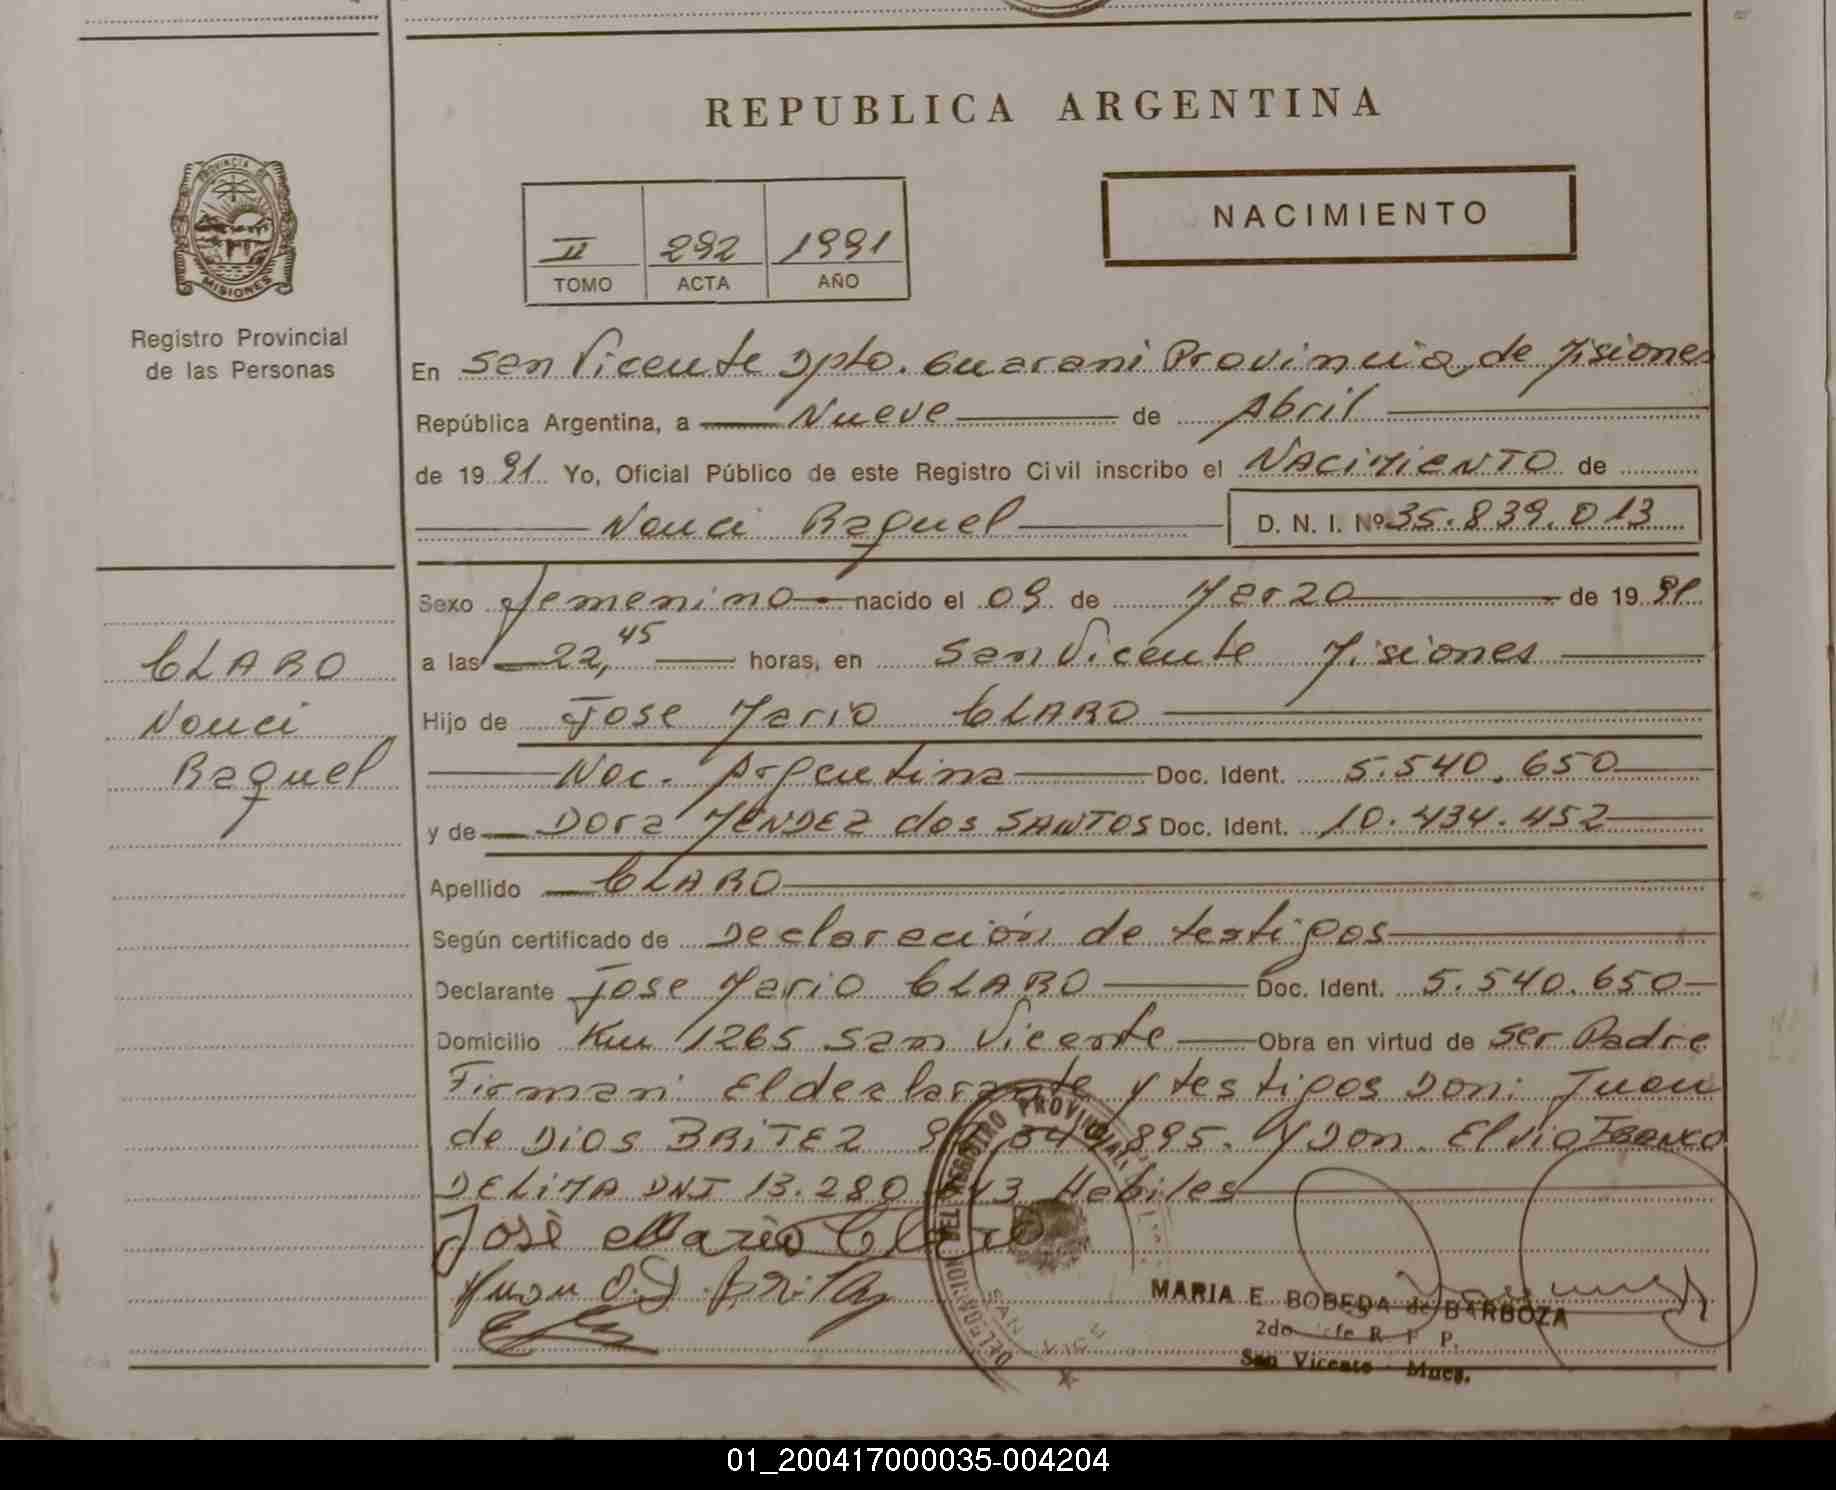 REPUBLICA ARGENTINA
NACIMIENTO
II 292 1991
TOMO ACTA AÑO
PROVINCIA DE
MISIONES
Registro Provincial
de las Personas
En San Vicente Dpto. Guarani Provincia de Misiones
República Argentina, a Nueve de Abril
de 19 91 Yo, Oficial Público de este Registro Civil inscribo el NACIMIENTO de
Nanci Raquel D. N. I. Nº 35.839.013
Sexo femenino nacido el 09 de Marzo de 19 91
a las 22,45 horas, en San Vicente Misiones
Hijo de Jose Mario CLARO
Nac. Argentina Doc. Ident. 5.540.650
y de Dora MENDEZ dos SANTOS Doc. Ident. 10.434.452
Apellido CLARO
Según certificado de Declaración de testigos
Declarante Jose Mario CLARO Doc. Ident. 5.540.650
Domicilio Km 1265 San Vicente Obra en virtud de ser Padre
Firman: El declarante y testigos Don: Juan
de Dios BRITEZ 895. Y Don. Elvio Franco
DELIMA DNI 13.280 Habiles
CLARO
Nanci
Raquel
José Mario Claro
Juan D. D. Britez
DEL REGISTRO PROVINCIAL
DELEGACION
SAN VICE
MARIA E BOBEDA de BARBOZA
2do Jefe R P P.
San Vicente Mnes.
01_200417000035-004204